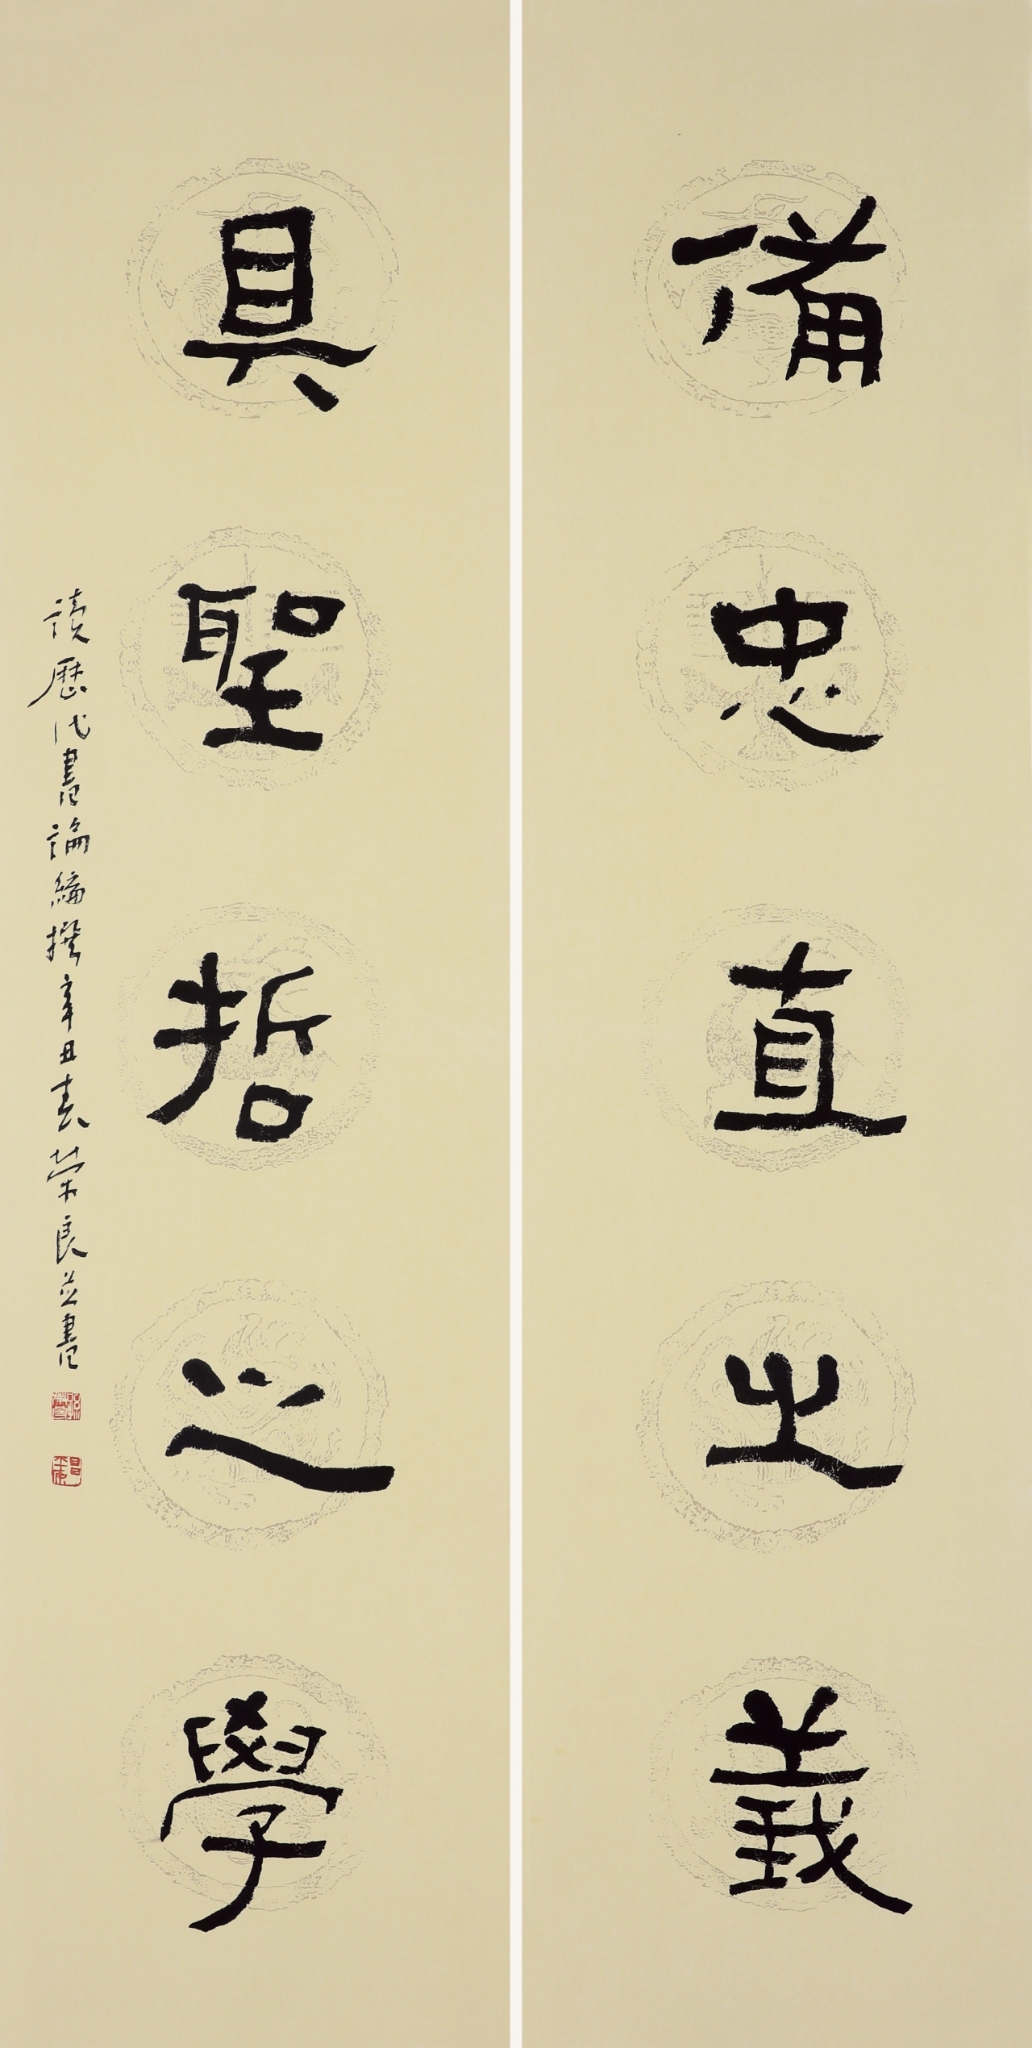 備忠直之義
具聖哲之學
讀歷代書論編撰辛丑春榮良並書